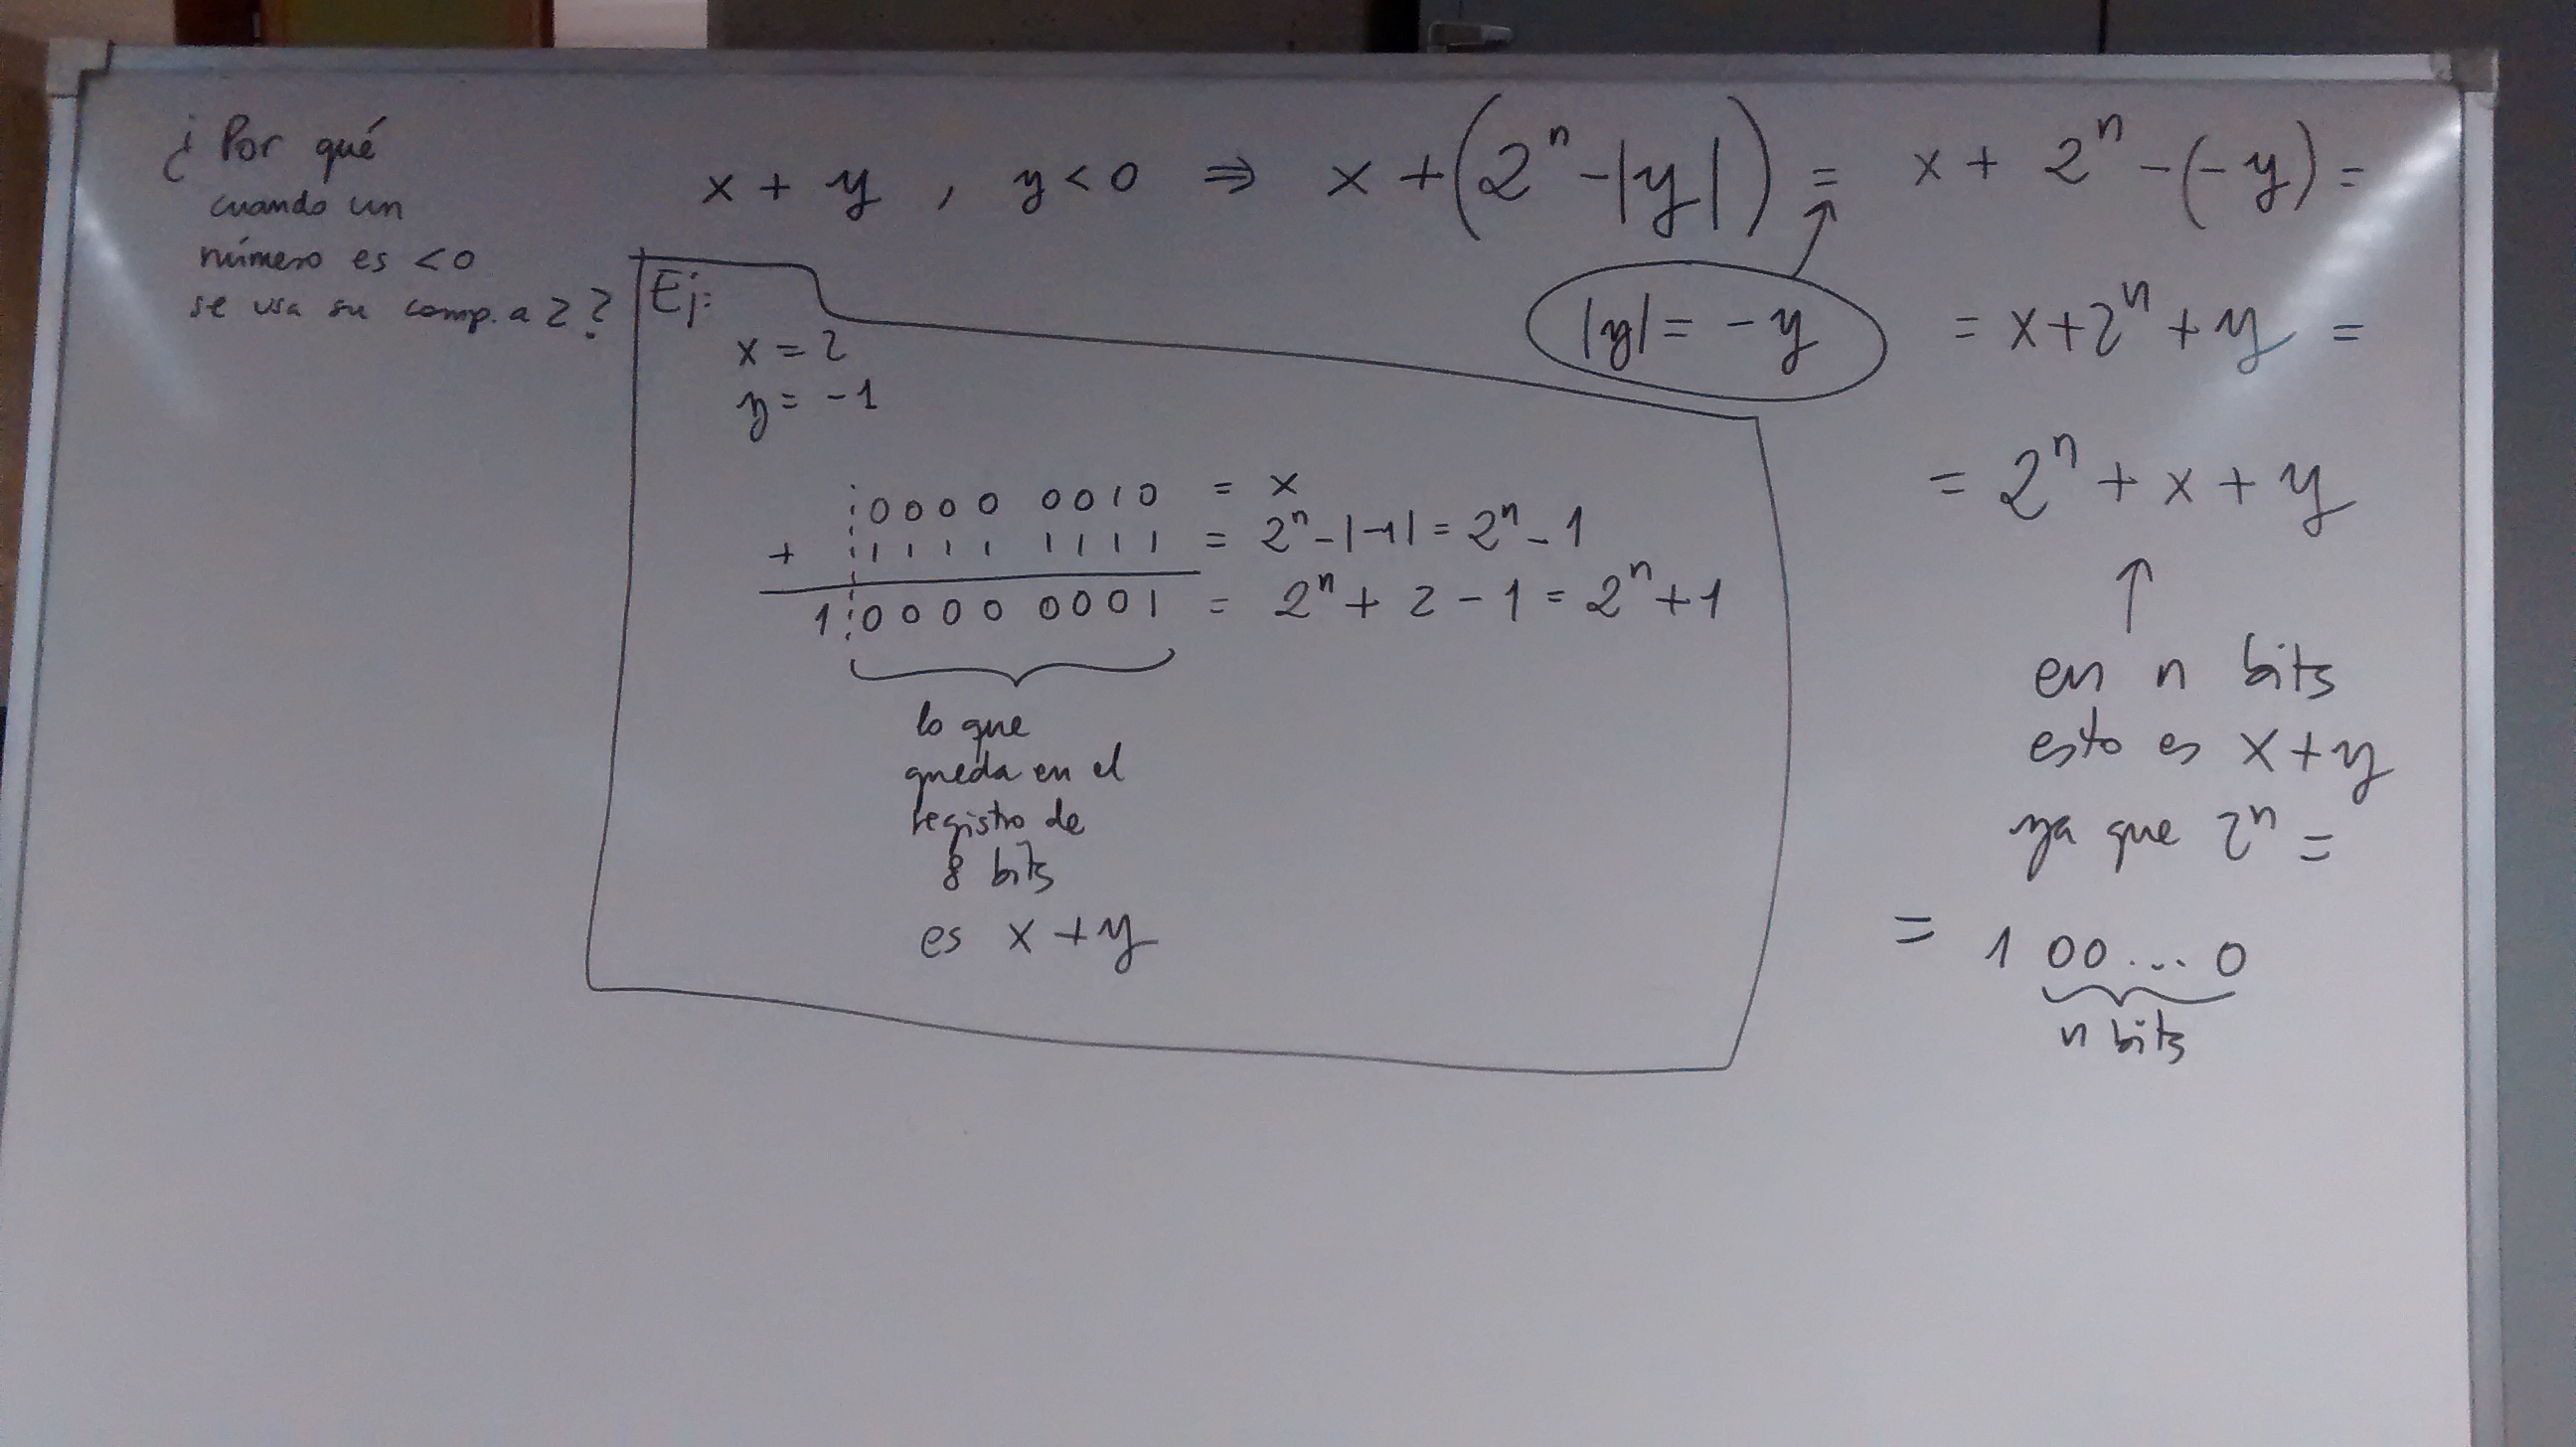 ¿Por qué
cuando un
número es <0
se usa su comp. a 2?
x + y , y < 0 ⇒ x + (2ⁿ - |y|) = x + 2ⁿ - (-y) =
|y| = -y
= x + 2ⁿ + y =
= 2ⁿ + x + y
↑
en n bits
esto es x + y
ya que 2ⁿ =
= 1 00...0
n bits
Ej:
x = 2
y = -1
0000 0010 = x
+ 1111 1111 = 2ⁿ - |-1| = 2ⁿ - 1
1 0000 0001 = 2ⁿ + 2 - 1 = 2ⁿ + 1
lo que
queda en el
registro de
8 bits
es x + y